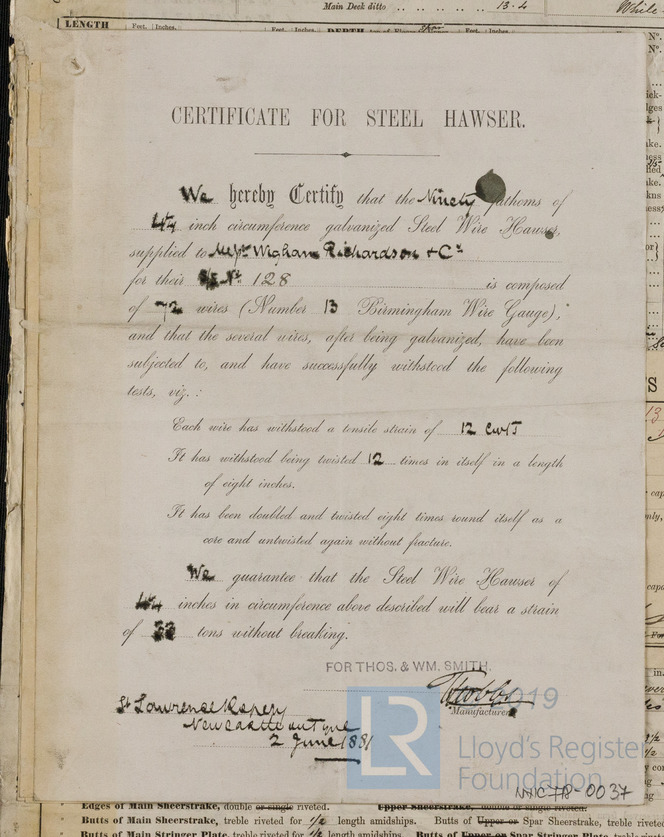 Main Deck ditto .. .. .. .. .. 13.4
LENGTH
Feet. Inches.
CERTIFICATE FOR STEEL HAWSER.
We hereby Certify that the Ninety fathoms of
inch circumference galvanized Steel Wire Hawser,
supplied to Messrs Wigham Richardson & Co
for their No 128 is composed
of 72 wires (Number 13 Birmingham Wire Gauge),
and that the several wires, after being galvanized, have been
subjected to, and have successfully withstood the following
tests, viz.:
Each wire has withstood a tensile strain of 12 cwts
It has withstood being twisted 12 times in itself in a length
of eight inches.
It has been doubled and twisted eight times round itself as a
core and untwisted again without fracture.
We guarantee that the Steel Wire Hawser of
inches in circumference above described will bear a strain
of 33 tons without breaking.
FOR THOS. & WM. SMITH.
Manufacturers
St Lawrence Ropery
Newcastle on Tyne
2 June 1881
LR
2019
Lloyd's Register
Foundation
NWC-TR-0037
Edges of Main Sheerstrake, double or single riveted.
Butts of Main Sheerstrake, treble riveted for 1/2 length amidships. Butts of Upper or Spar Sheerstrake, treble riveted
Butts of Main Stringer Plate, treble riveted for 1/2 length amidships.